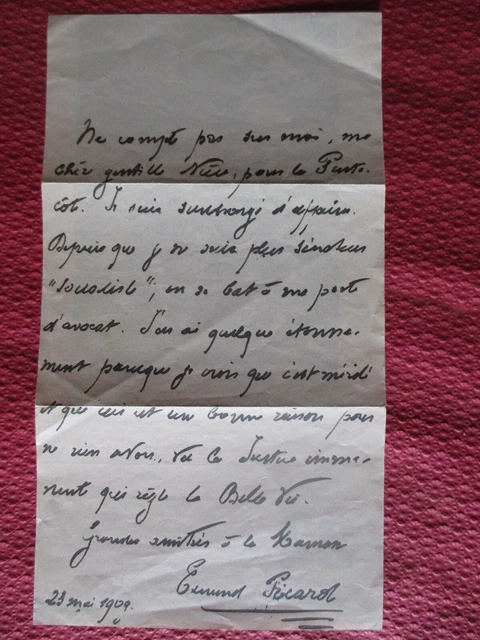 Ne compte pas sur moi, ma
chère gentille Nièce, pour la Pente-
côte. Je suis surchargé d'affaires.
Depuis que je ne suis plus Sénateur
"Socialiste", on se bat à ma porte
d'avocat. J'en ai quelque étonne-
ment parceque je crois que c'est mérité
et que ceci est une bonne raison pour
ne rien avoir, vu la Justice imma-
nente qui règle la Belle Vie.
Grandes amitiés à la Maman
Edmond Picard
23 mai 1909.